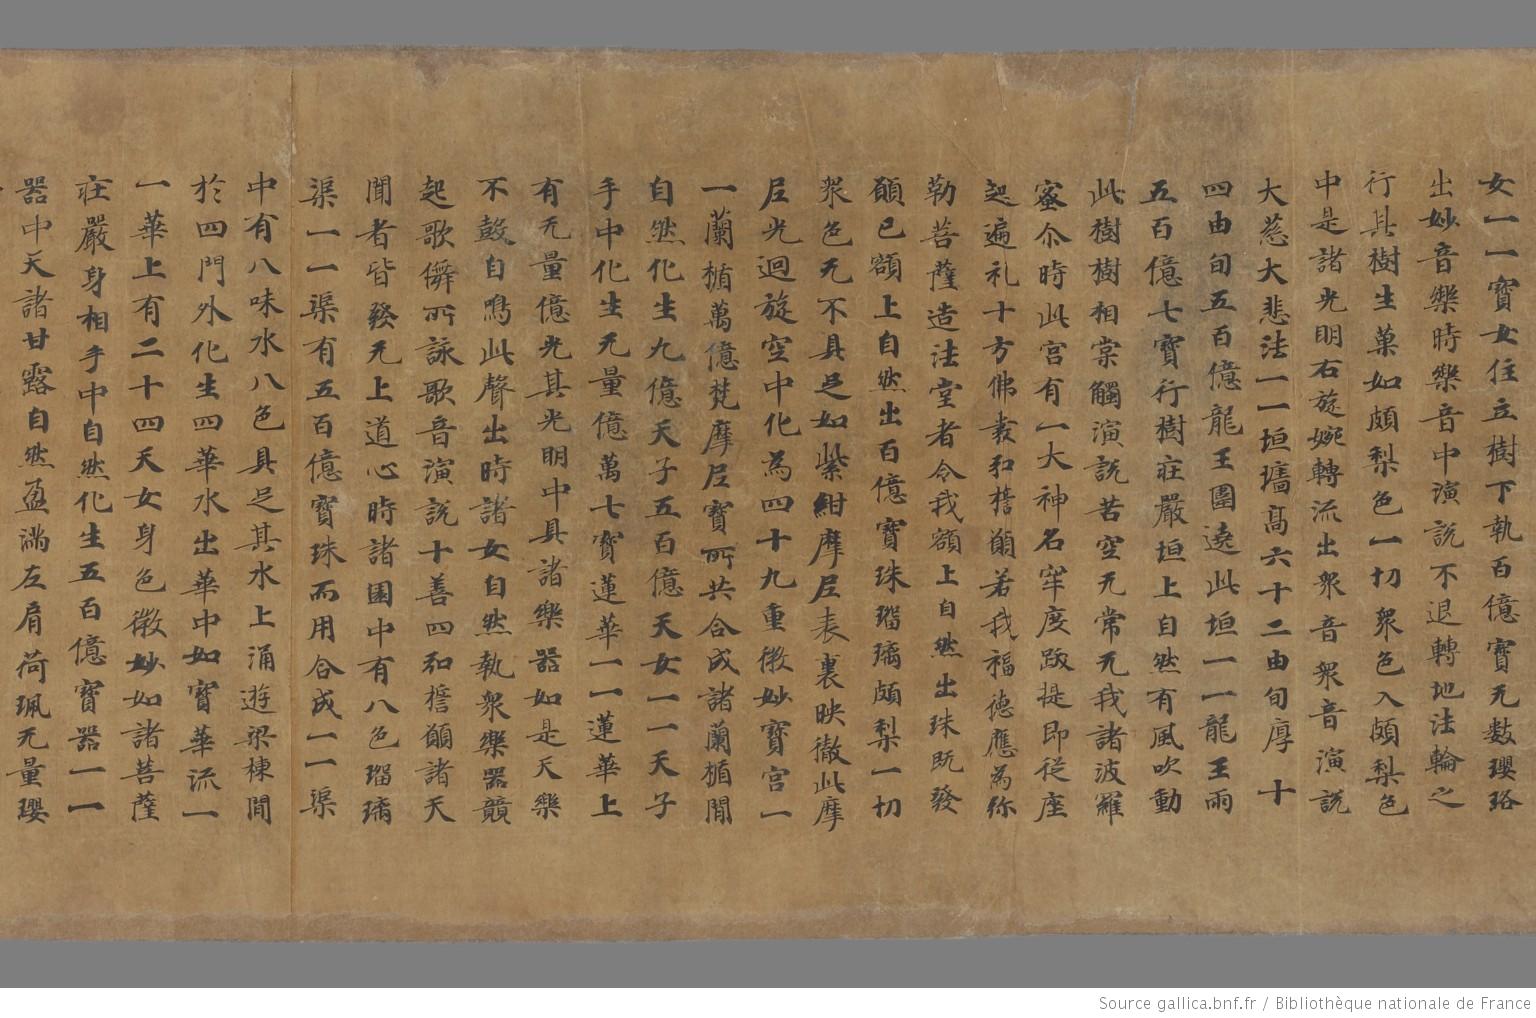 女一一寶女住立樹下執百億寶无數瓔珞
出妙音樂時樂音中演說不退轉地法輪之
行其樹生菓如頗梨色一切衆色入頗梨色
中是諸光明右旋婉轉流出衆音衆音演說
大慈大悲法一一垣牆高六十二由旬厚十
四由旬五百億龍王圍遶此垣一一龍王雨
五百億七寶行樹莊嚴垣上自然有風吹動
此樹樹相棠觸演說苦空无常无我諸波羅
蜜尒時此宮有一大神名牢度跋提即從座
起遍礼十方佛裘和擔願若我福德應為弥
勒菩薩造法堂者令我額上自然出珠既發
願已額上自然出百億寶珠瑠璃頗梨一切
衆色无不具足如紫紺摩尼表裏映徹此摩
尼光迴旋空中化為四十九重微妙寶宮一
一蘭楯萬億梵摩尼寶所共合成諸蘭楯間
自然化生九億天子五百億天女一一天子
手中化生无量億萬七寶蓮華一一蓮華上
有无量億光其光明中具諸樂器如是天樂
不鼓自鳴此聲出時諸女自然執衆樂器競
起歌儛所詠歌音演說十善四和擔願諸天
聞者皆發无上道心時諸園中有八色瑠璃
渠一一渠有五百億寶珠而用合成一一渠
中有八味水八色具足其水上涌遊梁棟間
於四門外化生四華水出華中如寶華流一
一華上有二十四天女身色微妙如諸菩薩
莊嚴身相手中自然化生五百億寶器一一
器中天諸甘露自然盈滿左肩荷珮无量瓔
Source gallica.bnf.fr / Bibliothèque nationale de France